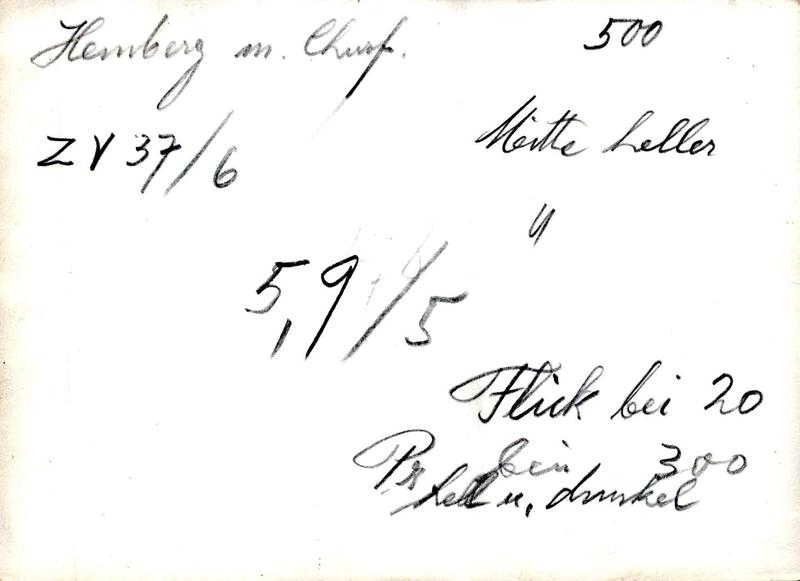 Hemberg m. Churf. 500
ZV 37/6 Mitte heller
"
5,9/5
Flick bei 20
bei 300
hell u. dunkel